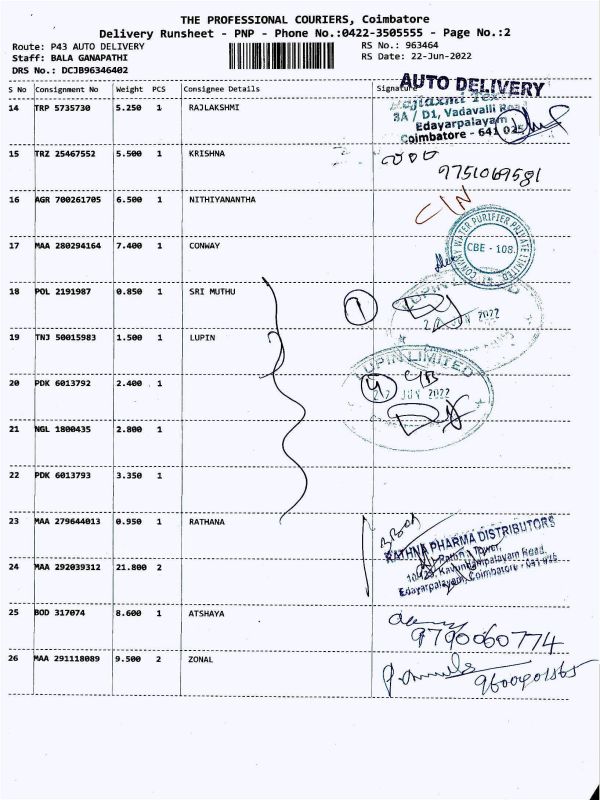 THE PROFESSIONAL COURIERS, Coimbatore
Delivery Runsheet - PNP - Phone No.:0422-3505555 - Page No.:2
Route: P43 AUTO DELIVERY RS No.: 963464
Staff: BALA GANAPATHI RS Date: 22-Jun-2022
DRS No.: DCJB96346402
S No Consignment No Weight PCS Consignee Details Signature
AUTO DELIVERY
14 TRP 5735730 5.250 1 RAJLAKSHMI
3A / D1, Vadavalli Road
Edayarpalayam
Coimbatore - 641 025
15 TRZ 25467552 5.500 1 KRISHNA
9751069581
16 AGR 700261705 6.500 1 NITHIYANANTHA
C/N
17 MAA 280294164 7.400 1 CONWAY
WATER PURIFIER PRIVATE LIMITED
CBE - 108.
18 POL 2191987 0.850 1 SRI MUTHU
1
JUN 2022
19 TNJ 50015983 1.500 1 LUPIN
LUPIN LIMITED
20 PDK 6013792 2.400 1
4
JUN 2022
21 NGL 1800435 2.800 1
22 PDK 6013793 3.350 1
23 MAA 279644013 0.950 1 RATHANA
RATHNA PHARMA DISTRIBUTORS
Rathna Tower,
24 MAA 292039312 21.800 2
Kavundampalayam Road,
Edayarpalayam, Coimbatore - 641 025
25 BOD 317074 8.600 1 ATSHAYA
9790060774
26 MAA 291118089 9.500 2 ZONAL